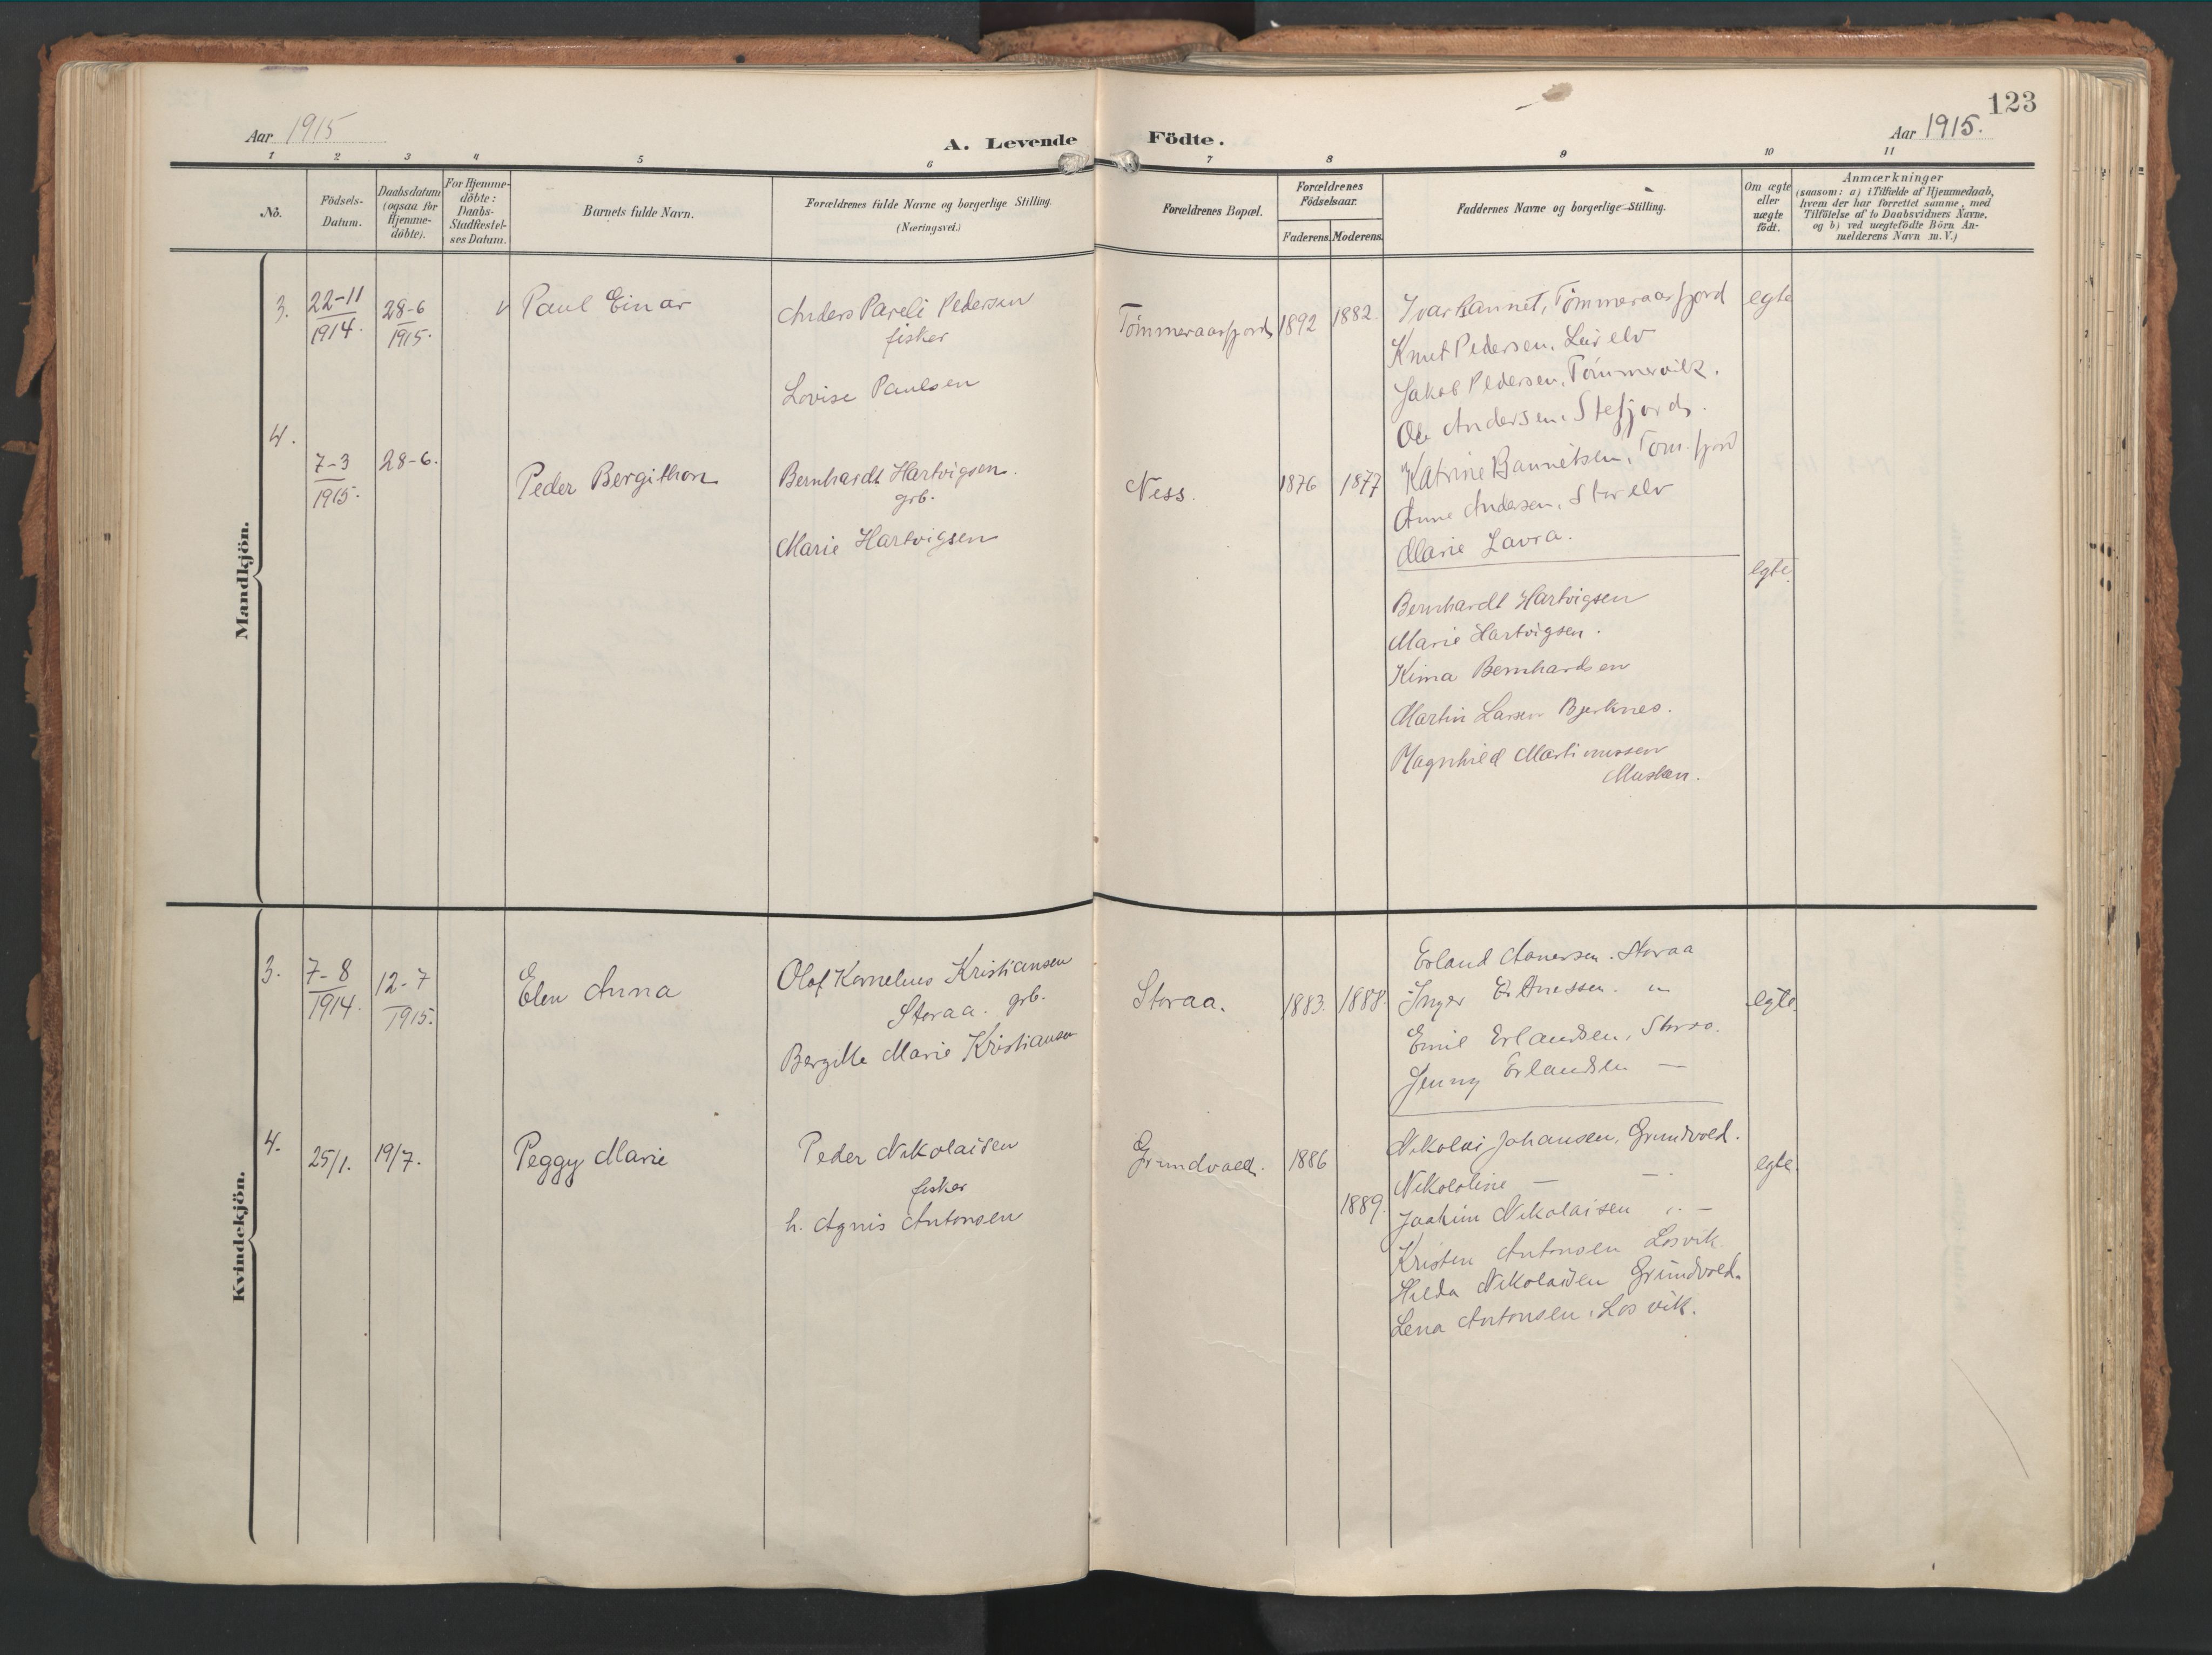 123
Aar 1915
A. Levende Födte.
Aar 1915.
1 2 3 4 5 6 7 8 9 10 11
No.
Födsels-
Datum.
Daabsdatum
(ogsaa for
Hjemme-
döbte).
For Hjemme-
döbte:
Daabs-
Stadfæstel-
ses Datum.
Barnets fulde Navn.
Forældrenes fulde Navne og borgerlige Stilling.
(Næringsvei.)
Forældrenes Bopæl.
Forældrenes
Födselsaar.
Faderens. Moderens.
Faddernes Navne og borgerlige Stilling.
Om ægte
eller
uægte
födt.
Anmærkninger
(saasom: a) i Tilfælde af Hjemmedaab,
hvem der har forrettet samme, med
Tilföielse af to Daabsvidners Navne,
og b) ved uægtefödte Börn An-
melderens Navn m. V.)
Mandkjön.
3.
22-11
1914.
28-6
1915.
Paul Einar
Anders Pareli Pedersen
fisker
Lovise Paulsen
Tömmeraasfjord
1892
1882.
Ivar Bannet, Tömmeraasfjord
Knut Pedersen,
Jakob Pedersen, Tömmervik.
Ole Andersen, Stefjord.
Katrine Bannetsen, Töm.fjord
Anne Andersen, Storelv
Marie Lavra.
egte
4.
7-3
1915.
28-6.
Peder Bergithon
Bernhardt Hartvigsen.
grb.
Marie Hartvigsen
Ness.
1876
1877
egte.
Bernhardt Hartvigsen
Marie Hartvigsen.
Kima Bernhardsen
Martin Larsen Bjerknes.
Magnhild Martinussen
Musken.
Kvindekjön.
3.
7-8
1914.
12-7
1915.
Elen Anna
Olof Kornelius Kristiansen
Storaa. grb.
Bergitte Marie Kristiansen
Storaa.
1883.
1888.
Erland Storaa
Inger
Emil Erlandsen, Storaa.
Jenny Erlandsen —
egte.
4.
25/1.
19/7.
Peggy Marie
Peder Nikolaisen
fisker
h. Agnis Antonsen
Grundvold.
1886
1889.
Nikolai Johansen, Grundvold.
Nikololine — —
Joakim Nikolaisen —
Kristen Antonsen Losvik
Hilda Nikolaisen Grundvold.
Lena Antonsen, Losvik.
egte.